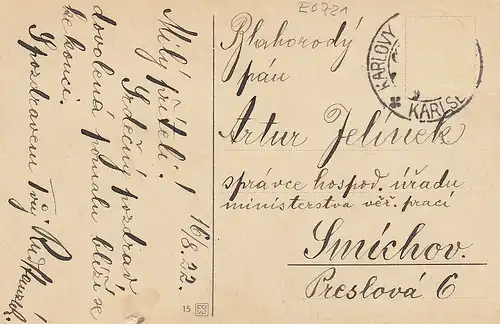 E6721
Milý příteli!
16/8.22.
Srdečný pozdrav.
dovolená pomalu blíží se
ke konci.
S pozdravem Tvůj Rud.
Blahorodý
pán
Artur Jelínek
správce hospod. úřadu
ministerstva věř. prací
Smíchov.
Preslová 6
KARLOVY
KARLSB
15 ES